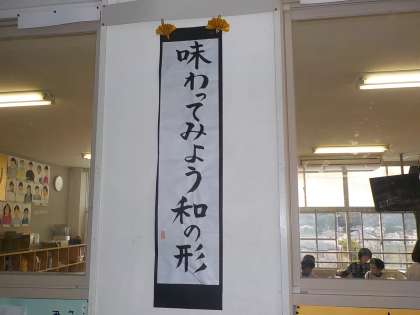 味わってみよう和の形